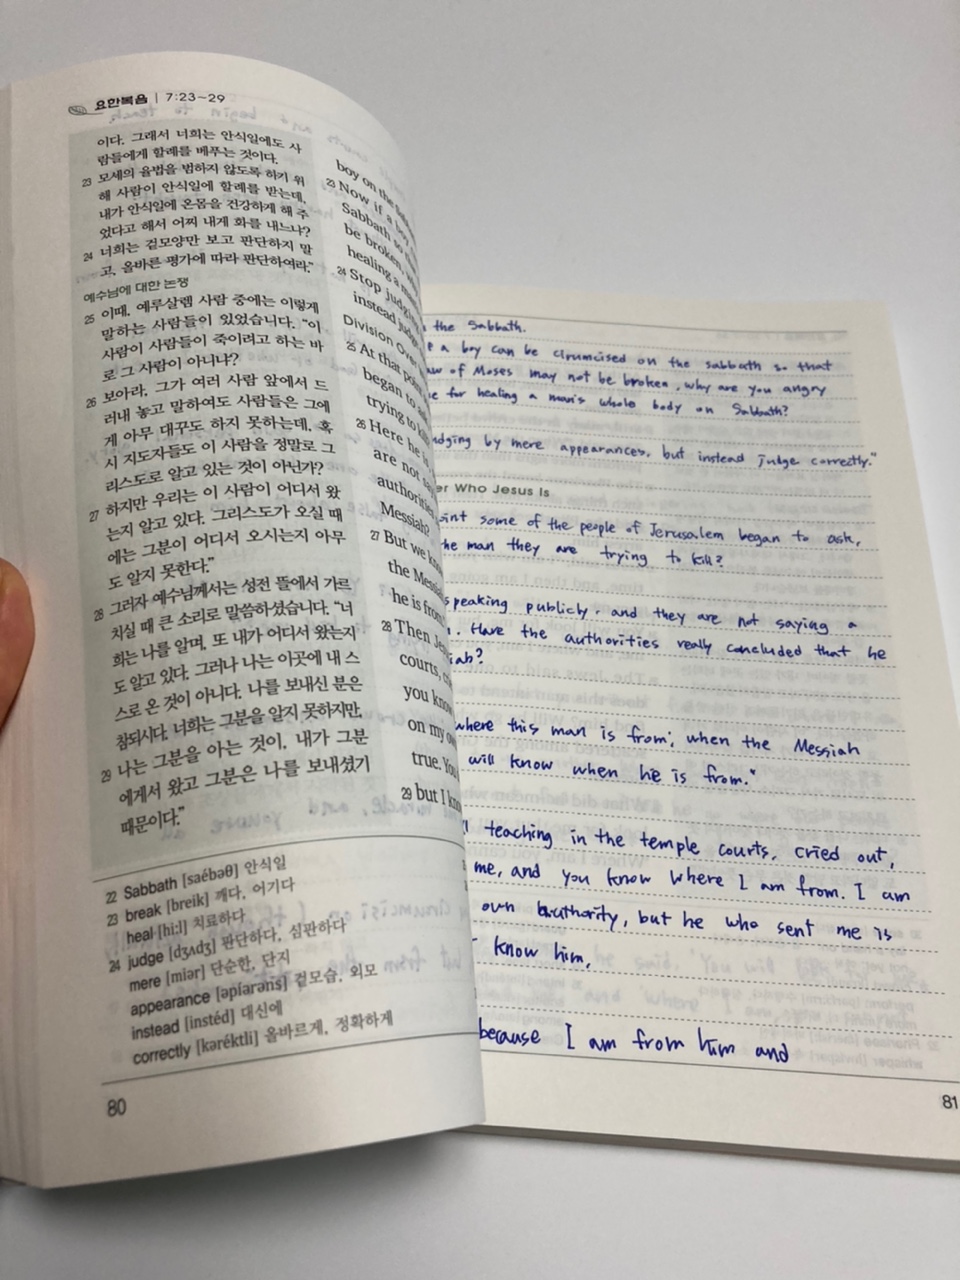 요한복음 | 7:23~29
이다. 그래서 너희는 안식일에도 사
람들에게 할례를 베푸는 것이다.
23 모세의 율법을 범하지 않도록 하기 위
해 사람이 안식일에 할례를 받는데,
내가 안식일에 온몸을 건강하게 해 주
었다고 해서 어찌 내게 화를 내느냐?
24 너희는 겉모양만 보고 판단하지 말
고, 올바른 평가에 따라 판단하여라."
예수님에 대한 논쟁
25 이때, 예루살렘 사람 중에는 이렇게
말하는 사람들이 있었습니다. "이
사람이 사람들이 죽이려고 하는 바
로 그 사람이 아니냐?
26 보아라, 그가 여러 사람 앞에서 드
러내 놓고 말하여도 사람들은 그에
게 아무 대꾸도 하지 못하는데, 혹
시 지도자들도 이 사람을 정말로 그
리스도로 알고 있는 것이 아닌가?
27 하지만 우리는 이 사람이 어디서 왔
는지 알고 있다. 그리스도가 오실 때
에는 그분이 어디서 오시는지 아무
도 알지 못한다."
28 그러자 예수님께서는 성전 뜰에서 가르
치실 때 큰 소리로 말씀하셨습니다. "너
희는 나를 알며, 또 내가 어디서 왔는지
도 알고 있다. 그러나 나는 이곳에 내 스
스로 온 것이 아니다. 나를 보내신 분은
참되시다. 너희는 그분을 알지 못하지만,
29 나는 그분을 아는 것이, 내가 그분
에게서 왔고 그분은 나를 보내셨기
때문이다."
22 Sabbath [sæbəθ] 안식일
23 break [breik] 깨다, 어기다
heal [hi:l] 치료하다
24 judge [dʒʌdʒ] 판단하다, 심판하다
mere [miər] 단순한, 단지
appearance [əpíərəns] 겉모습, 외모
instead [instéd] 대신에
correctly [kəréktli] 올바르게, 정확하게
80
boy on the
23 Now if a boy
Sabbath so
be broken,
healing a
24 Stop judging
instead
Division Over
25 At that point
began to
trying to kill
26 Here he is
are not
authorities
Messiah?
27 But we know
the Messiah
he is from
28 Then
courts,
you know
on my
true. You
29 but I
the Sabbath.
a boy can be cirumcised on the sabbath so that
of Moses may not be broken, why are you angry
for healing a man's whole body on Sabbath?
by mere appearances, but instead judge correctly."
Who Jesus Is
some of the people of Jerusalem began to ask,
man they are trying to kill?
speaking publicly, and they are not saying a
Have the authorities really concluded that he
where this man is from; when the Messiah
will know when he is from."
teaching in the temple courts, cried out,
me, and you know where I am from. I am
own authority, but he who sent me is
know him,
because I am from him and
81